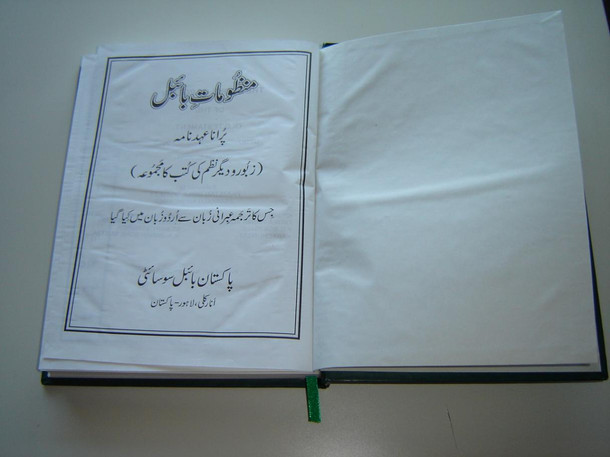 منظُومات بائبل
پُرانا عہد نامہ
(زبُور و دیگر نظم کی کُتب کا مجمُوعہ)
جِس کا ترجمہ عِبرانی زُبان سے اُردُو زُبان میں کِیا گیا
پاکستان بائبل سوسائٹی
انارکلی، لاہور - پاکستان